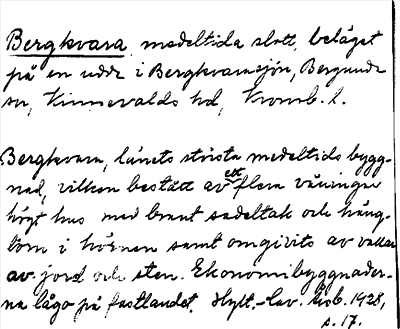 Bergkvara medeltida slott, beläget
på en udde i Bergkvarasjön, Bergunda
sn, Kinnevalds hd, Kronob. l.
Bergkvara, länets största medeltids bygg-
nad, vilken bestått av ett flera våningar
högt hus med brant sadeltak och häng-
torn i hörnen samt omgivits av vallar
av jord och sten. Ekonomibyggnader-
na lågo på fastlandet. Hylt.-Cav. bib. 1928,
s. 17.